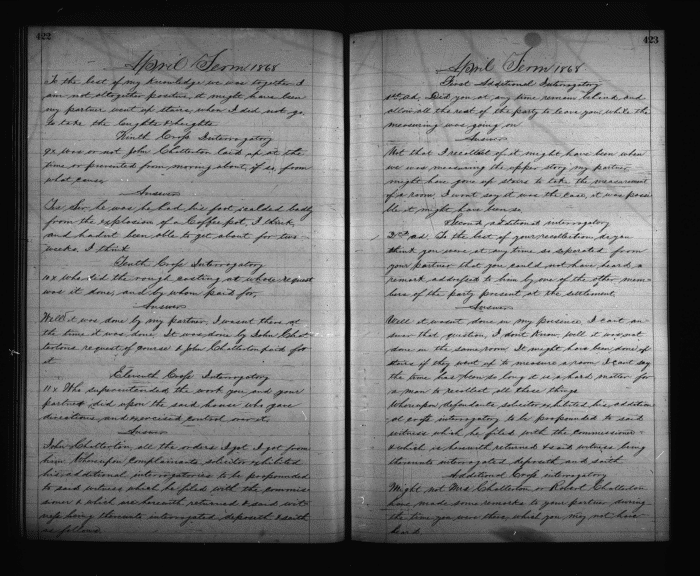 422
April Term 1868
To the best of my knowledge we was together I
am not altogether positive, it might have been
my partner went up stairs, when I did not go,
to take the lengths & heights
Ninth Cross Interrogatory
9x was or not John Chatterton laid up at the
time or prevented from moving about, if so from
what cause
Answer
Yes Sir he was, he had his foot scalded badly
from the explosion of a Coffee pot, I think,
and hadn't been able to get about for two
weeks, I think
Tenth Cross Interrogatory
10x who did the rough casting, at whose request
was it done, and by whom paid for,
Answer
Well it was done by my partner, I wasnt there at
the time it was done, It was done by John Chat-
tertons request of course & John Chatterton paid for
it
Eleventh Cross Interrogatory
11x Who superintended the work you and your
partner did upon the said house who gave
directions, and exercised control over it,
Answer
John Chatterton, all the orders I got I got from
him Whereupon complainants solicitor exhibited
his additional interrogatories to be propounded
to said witness which he filed with the commis-
sioner & which are herewith returned & said wit-
ness being thereunto interrogated deposeth & saith
as follows
423
April Term 1868
First Additional Interrogatory
1st ad. Did you at any time remain behind and
allow all the rest of the party to leave you, while the
measuring was going on
Answer
Not that I recollect of it might have been when
we was measuring the upper story my partner
might have gone up stairs to take the measurement
of a room, I wont say it was the case, it was possi-
ble it might have been so,
Second additional interrogatory
2nd ad. To the best of your recollection, do you
think you were at any time so separated from
your partner that you could not have heard a
remark addressed to him by one of the other mem-
bers of the party present at the settlement
Answer
Well it wasnt done in my presence, I cant an-
swer that question, I dont know, well it was not
done in the same room It might have been done up
stairs if they went up to measure a room I cant say
the time has been so long it is a hard matter for
a man to recollect all these things
Whereupon defendants solicitor exhibited his addition-
al cross interrogatory to be propounded to said
witness which he filed with the commissioner
& which is herewith returned & said witness being
thereunto interrogated deposeth and saith
Additional Cross interrogatory
Might not Mrs Chatterton or Robert Chatterton
have made some remarks to your partner during
the time you was there, which you may not have
heard